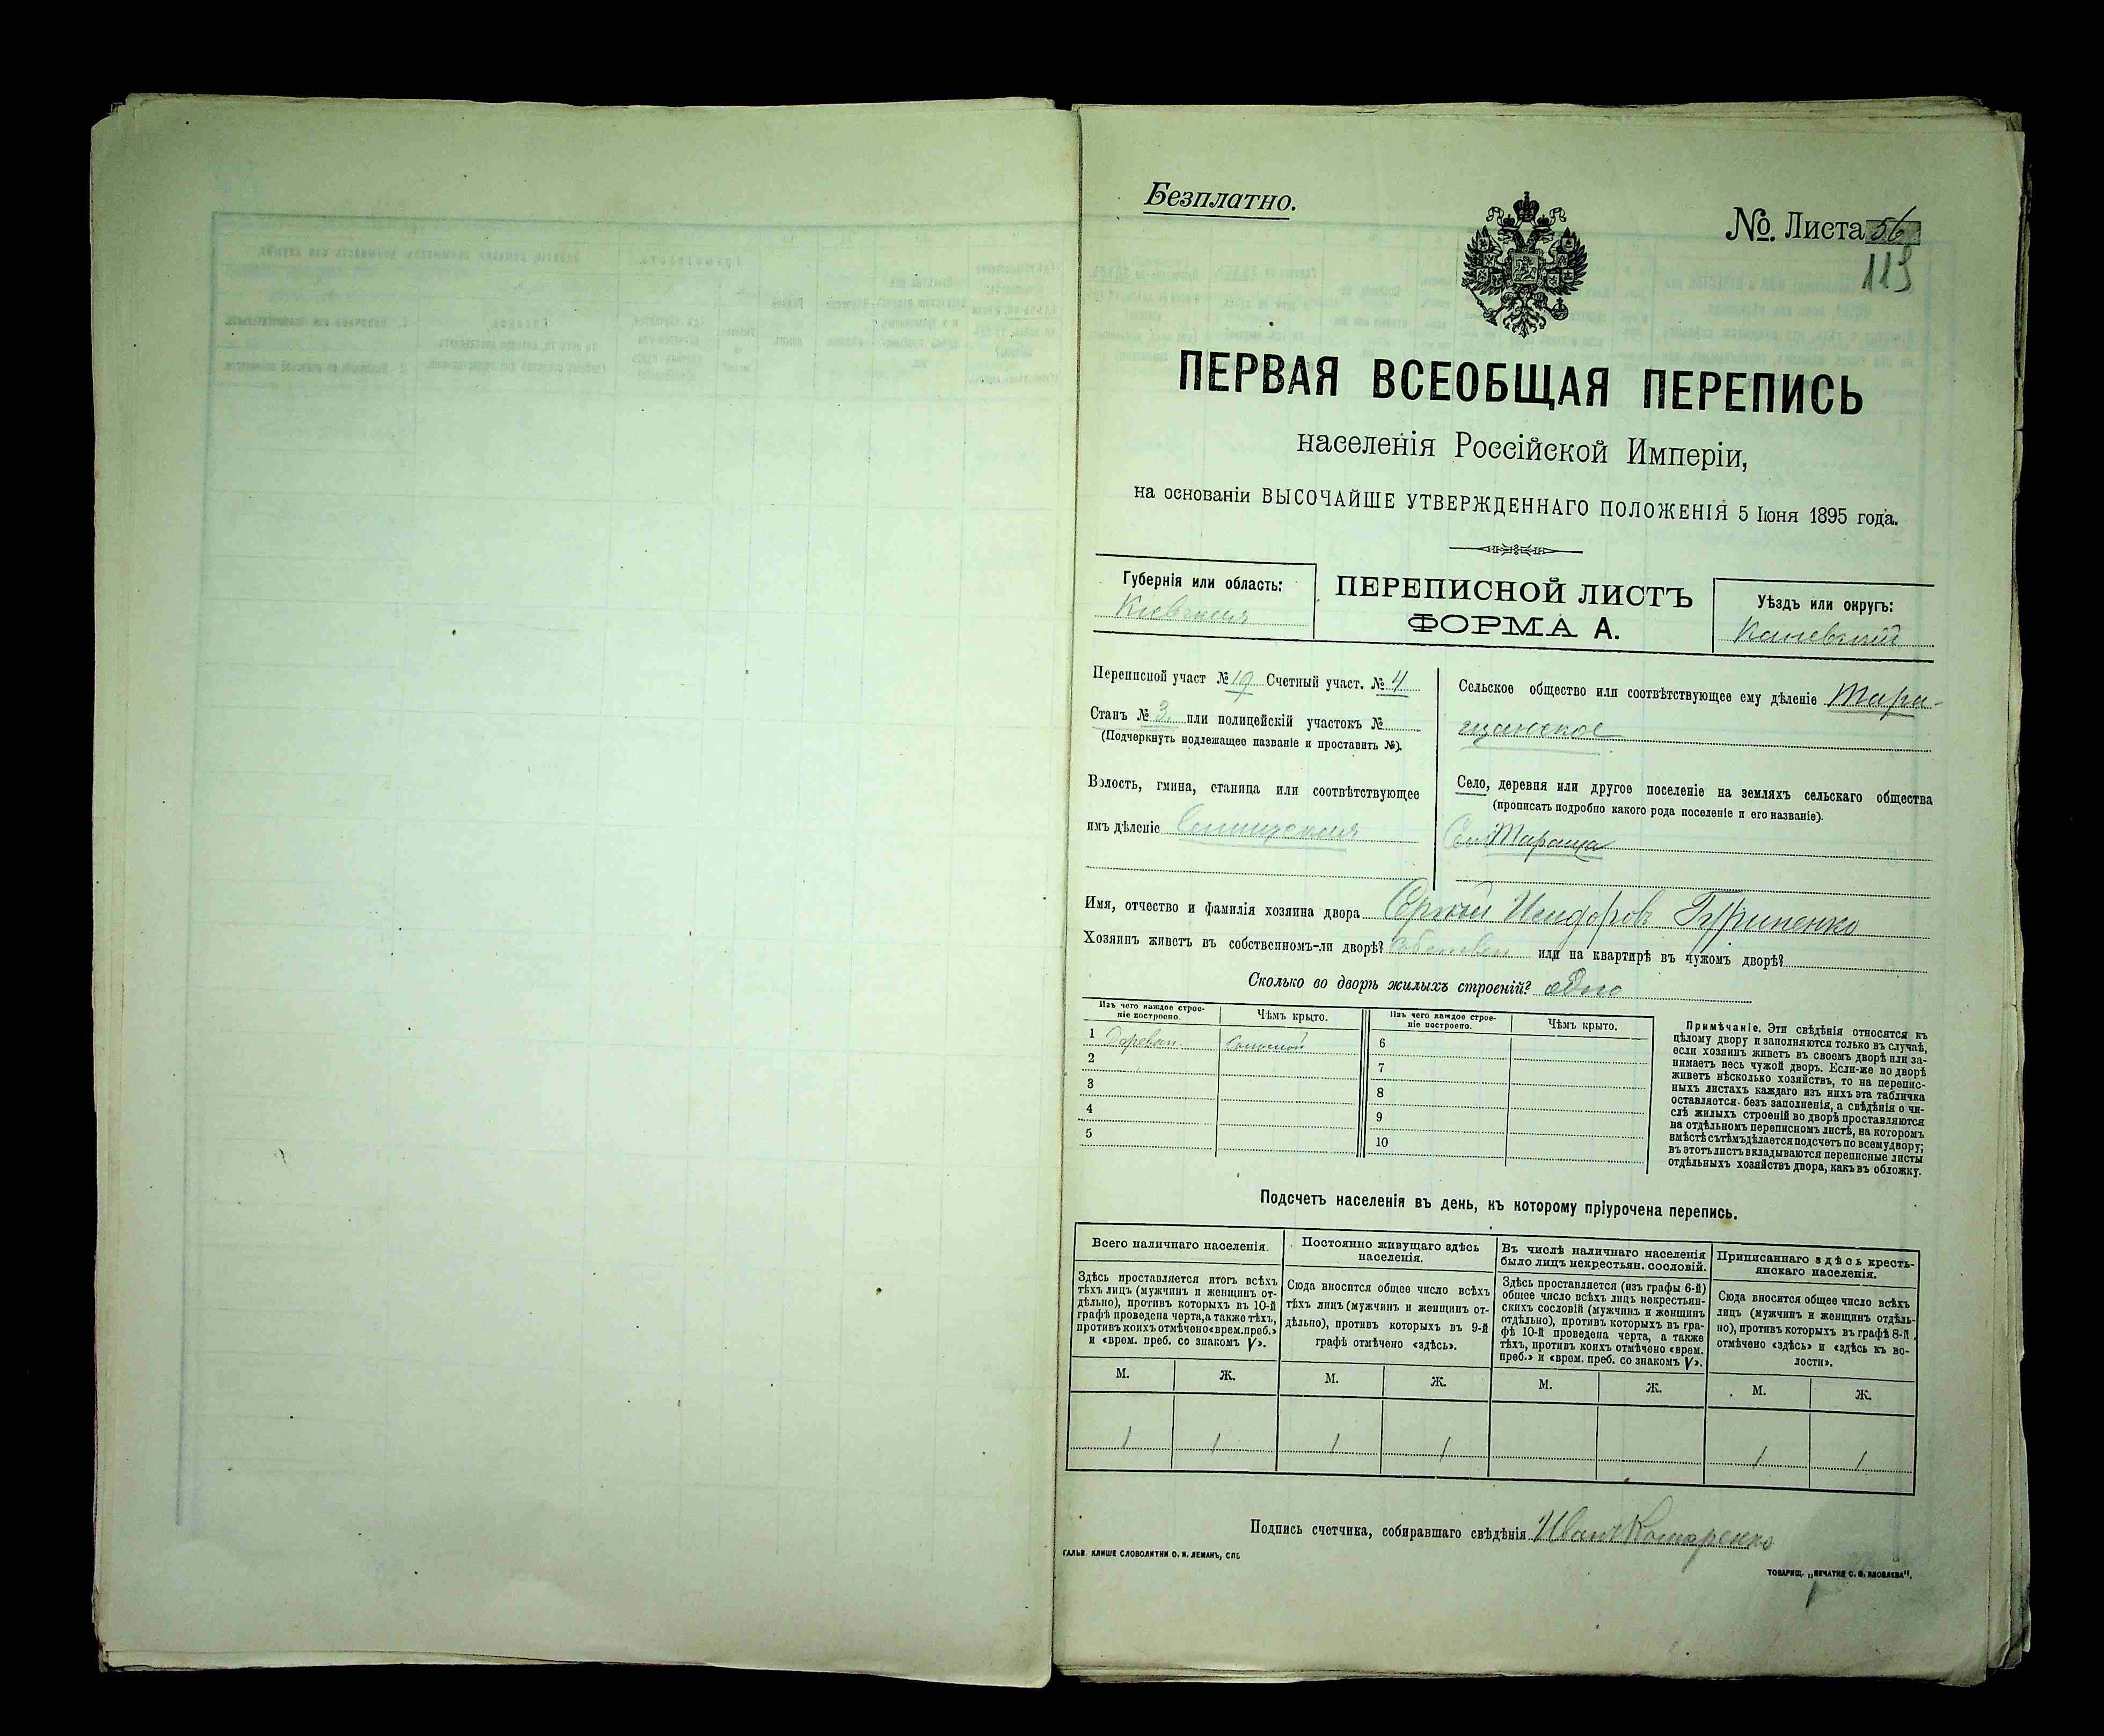 Безплатно.
№. Листа 56
115
ПЕРВАЯ ВСЕОБЩАЯ ПЕРЕПИСЬ
населенія Россійской Имперіи,
на основаніи ВЫСОЧАЙШЕ УТВЕРЖДЕННАГО ПОЛОЖЕНІЯ 5 Іюня 1895 года.
Губернія или область:
Кіевская
ПЕРЕПИСНОЙ ЛИСТЪ
ФОРМА А.
Уѣздъ или округъ:
Каневскій
Переписной участ № 19 Счетный участ. № 4
Станъ № 3. или полицейскій участокъ №
(Подчеркнуть подлежащее названіе и проставить №).
Волость, гмина, станица или соотвѣтствующее
имъ дѣленіе
Сельское общество или соотвѣтствующее ему дѣленіе Тара-
щанское
Село, деревня или другое поселеніе на земляхъ сельскаго общества
(прописать подробно какого рода поселеніе и его названіе).
Село Тараща
Имя, отчество и фамилія хозяина двора Сергій Исидоровъ
Хозяинъ живетъ въ собственномъ-ли дворѣ? или на квартирѣ въ чужомъ дворѣ?
Сколько во дворѣ жилыхъ строеній? одно
Изъ чего каждое строе-
ніе построено.
Чѣмъ крыто.
Изъ чего каждое строе-
ніе построено.
Чѣмъ крыто.
1 Деревян. Соломой
2
3
4
5
6
7
8
9
10
Примѣчаніе. Эти свѣдѣнія относятся къ
цѣлому двору и заполняются только въ случаѣ,
если хозяинъ живетъ въ своемъ дворѣ или за-
нимаетъ весь чужой дворъ. Если-же во дворѣ
живетъ нѣсколько хозяйствъ, то на перепис-
ныхъ листахъ каждаго изъ нихъ эта табличка
оставляется безъ заполненія, а свѣдѣнія о чи-
слѣ жилыхъ строеній во дворѣ проставляются
на отдѣльномъ переписномъ листѣ, на которомъ
вмѣстѣ съ тѣмъ дѣлается подсчетъ по всему двору;
въ этотъ листъ вкладываются переписные листы
отдѣльныхъ хозяйствъ двора, какъ въ обложку.
Подсчетъ населенія въ день, къ которому пріурочена перепись.
Всего наличнаго населенія.
Здѣсь проставляется итогъ всѣхъ
тѣхъ лицъ (мужчинъ и женщинъ от-
дѣльно), противъ которыхъ въ 10-й
графѣ проведена черта, а также тѣхъ,
противъ коихъ отмѣчено «врем. преб.»
и «врем. преб. со знакомъ V».
М. Ж.
1 1
Постоянно живущаго здѣсь
населенія.
Сюда вносится общее число всѣхъ
тѣхъ лицъ (мужчинъ и женщинъ от-
дѣльно), противъ которыхъ въ 9-й
графѣ отмѣчено «здѣсь».
М. Ж.
1 1
Въ числѣ наличнаго населенія
было лицъ некрестьян. сословій.
Здѣсь проставляется (изъ графы 6-й)
общее число всѣхъ лицъ некрестьян-
скихъ сословій (мужчинъ и женщинъ
отдѣльно), противъ которыхъ въ гра-
фѣ 10-й проведена черта, а также
тѣхъ, противъ коихъ отмѣчено «врем.
преб.» и «врем. преб. со знакомъ V».
М. Ж.
Приписаннаго здѣсь кресть-
янскаго населенія.
Сюда вносится общее число всѣхъ
лицъ (мужчинъ и женщинъ отдѣль-
но), противъ которыхъ въ графѣ 8-й
отмѣчено «здѣсь» и «здѣсь къ во-
лости».
М. Ж.
1 1
Подпись счетчика, собиравшаго свѣдѣнія Иванъ Комаренко
ГАЛЬВ. КЛИШЕ СЛОВОЛИТНИ О. И. ЛЕМАНЪ, СПБ
ТОВАРИЩ. „ПЕЧАТНЯ С. П. ЯКОВЛЕВА".